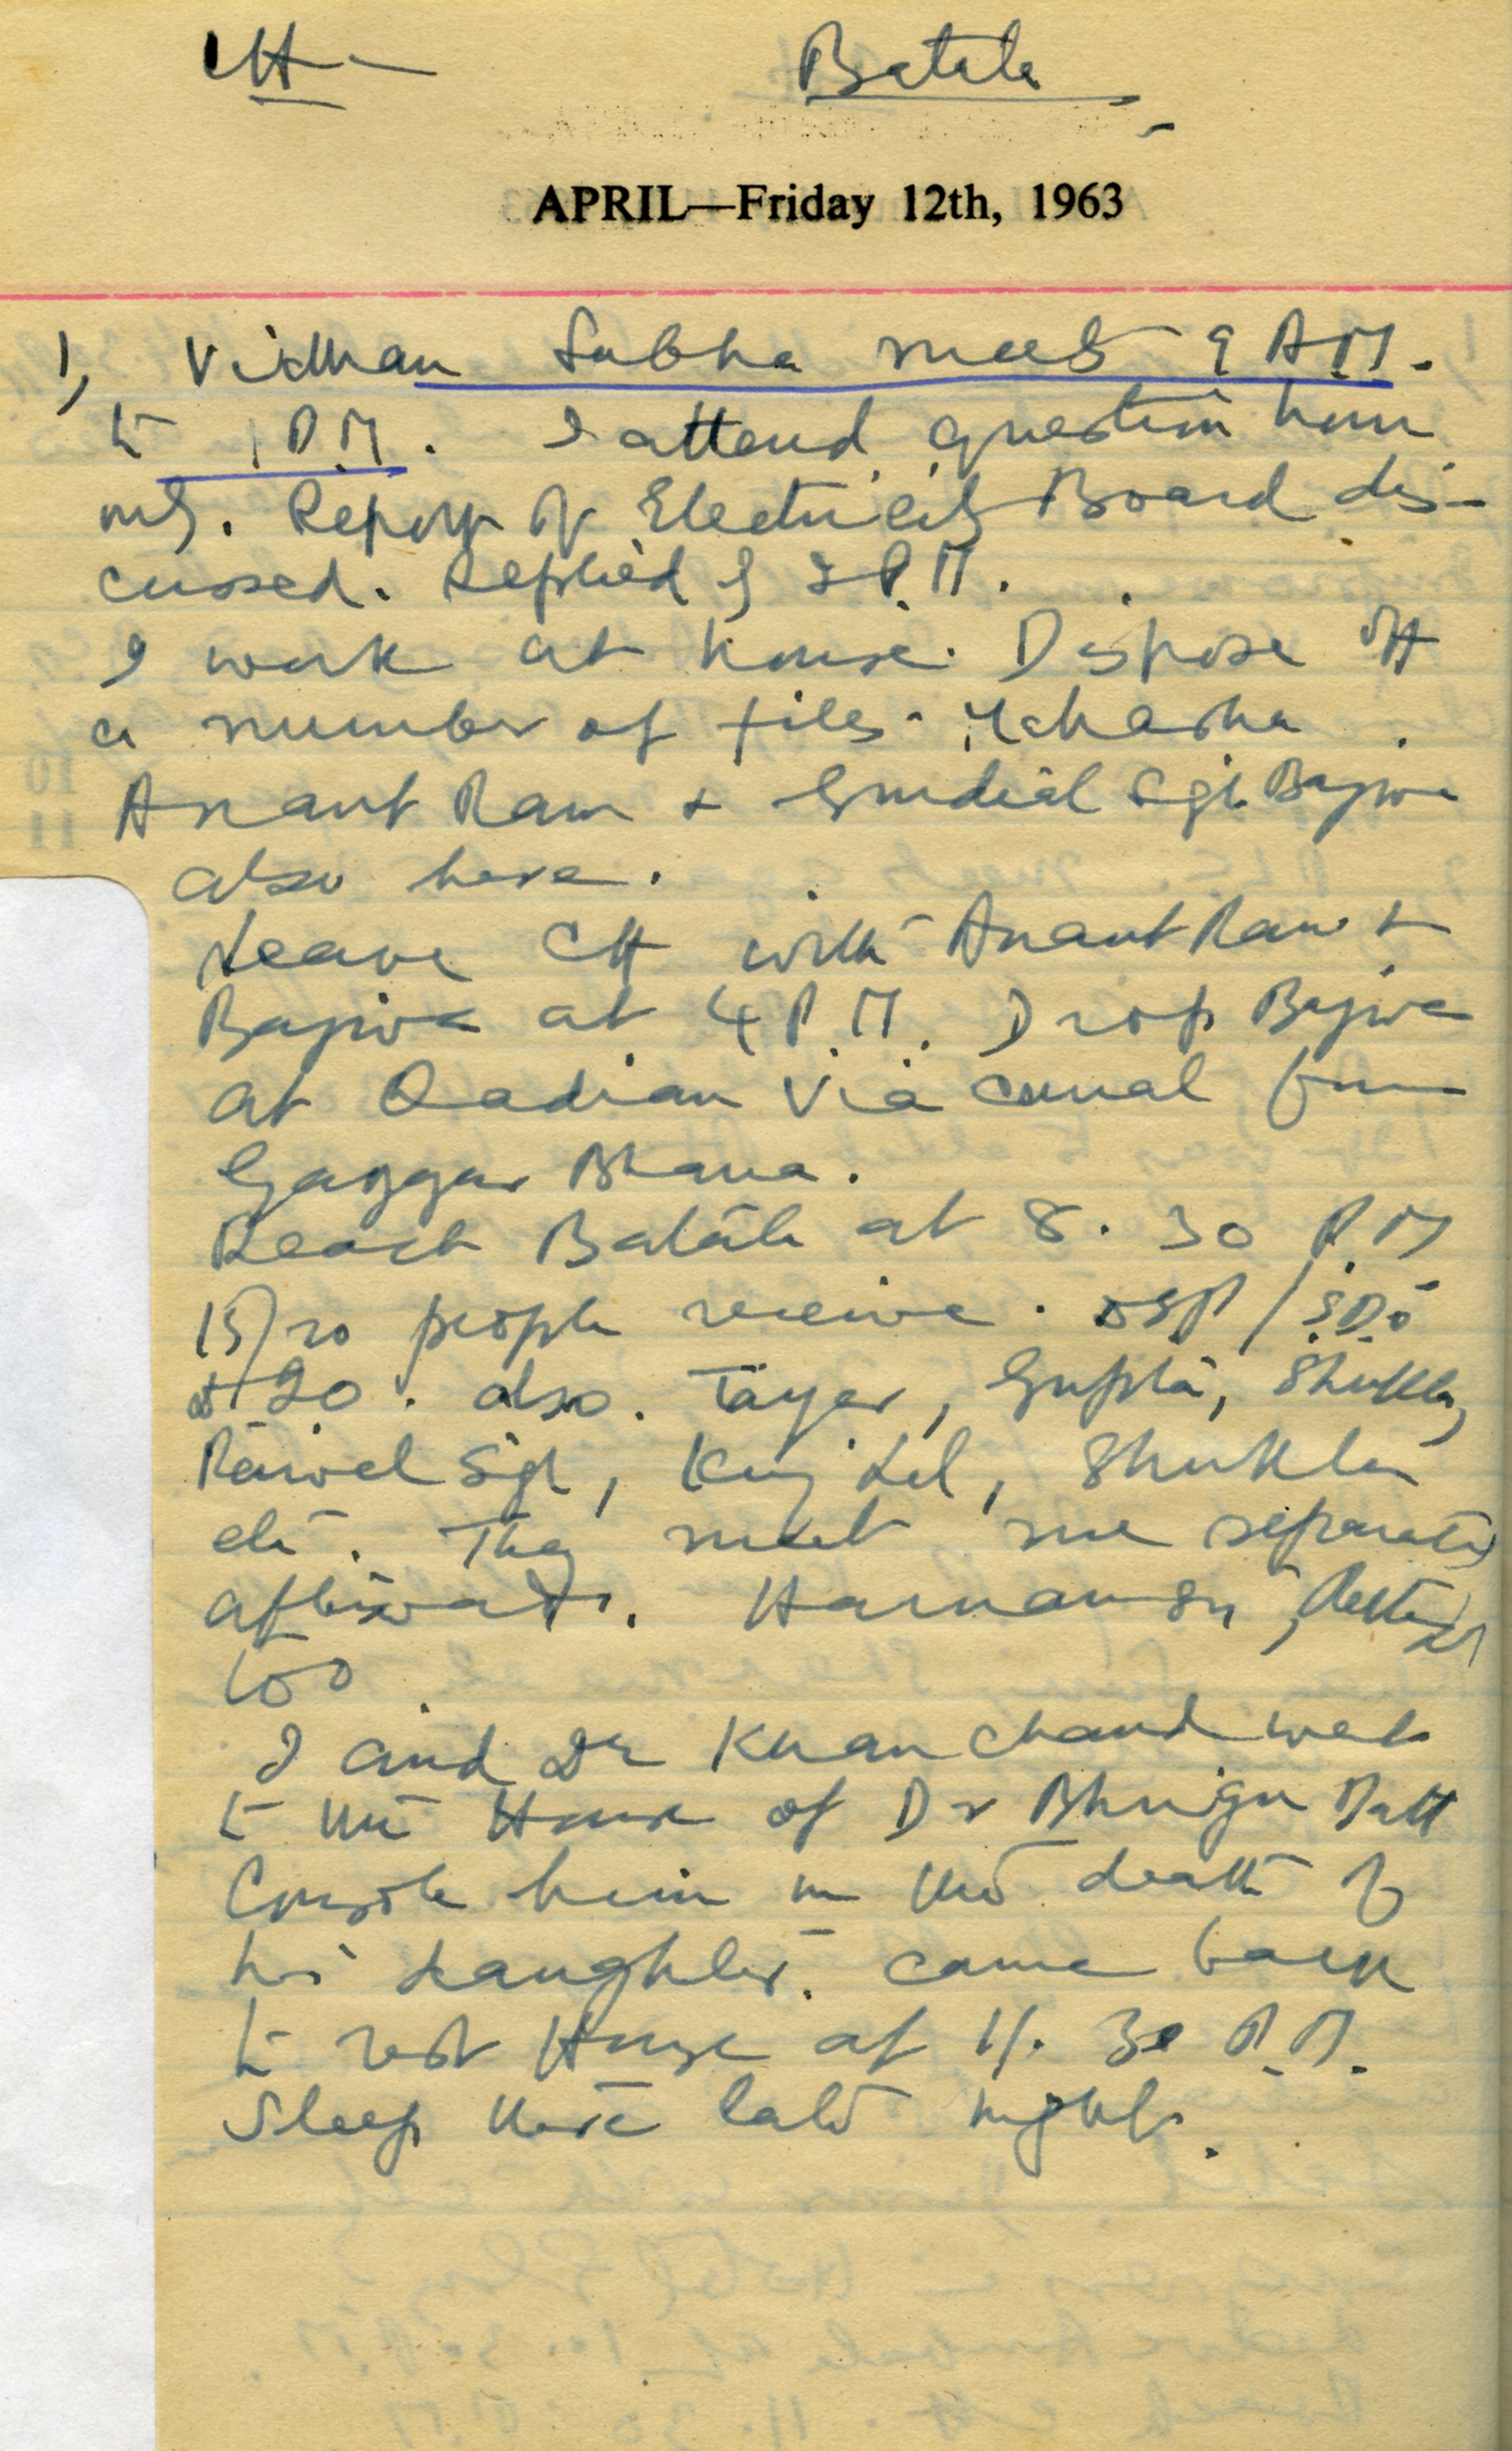 CH — Batala
APRIL—Friday 12th, 1963
1, Vidhan Sabha meets 9 A.M.
to 1 P.M. I attend question hour
only. Report of Electricity Board dis-
cussed. Replied by I.P.M.
I work at house. Dispose off
a number of files. Mahasha
Anant Ram & Gurdial Sgh Bajwa
also here.
Leave CH with Anant Ram &
Bajwa at 4 P.M. Drop Bajwa
at Qadian via canal from
Gaggar Bhana.
Reach Batala at 8.30 P.M
15/20 people receive. DSP/SDO
also. Tayer, Gupta, Shukla,
Rawel Sgh, Kunj Lal, Shukla
etc. They meet me separately
afterwards. Harnam Sgh,
too.
I and Dr Khan Chand went
to the House of Dr Bhrigu Datt
Console him on the death of
his daughter. Came back
to rest House at 11.30 P.M.
Sleep there late night.